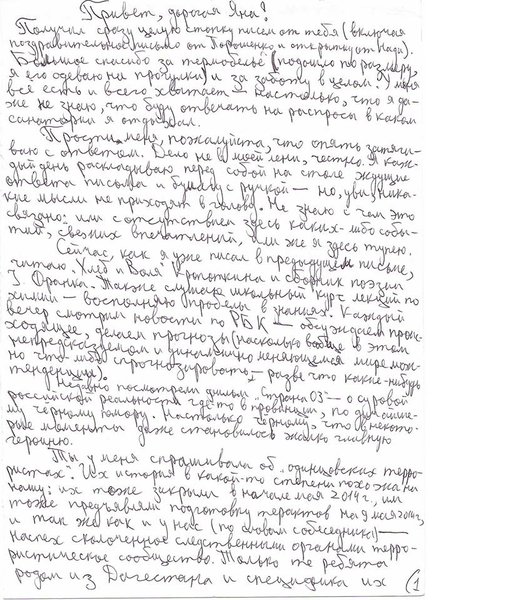 Привет, дорогая Яна!
Получил сразу целую стопку писем от тебя (включая
поздравительное письмо от Порошенко и открытку от Нади).
Большое спасибо за термобельё (подошло по размеру,
я его одеваю на прогулки) и за заботу в целом. У меня
всё есть и всего хватает – настолько, что я да-
же не знаю, что буду отвечать на распросы в каком
санатории я отдыхал.
Прости меня, пожалуйста, что опять затяги-
ваю с ответом. Дело не в моей лени, честно. Я каж-
дый день раскладываю перед собой на столе ждущие
ответа письма и бумагу с ручкой – но, увы, ника-
кие мысли не приходят в голову. Не знаю с чем это
связано: или с отсутствием здесь каких-либо собы-
тий, свежих впечатлений, или же я здесь тупею.
Сейчас, как я уже писал в предыдущем письме,
читаю „Хлеб и Воля" Кропоткина и сборник поэзии
І. Франка. Также слушаю школьный курс лекций по
химии – восполняю пробелы в знаниях. Каждый
вечер смотрим новости по РБК – обсуждаем проис-
ходящее, делаем прогнозы (насколько вообще в этом
непредсказуемом и динамично меняющемся мире мож-
но что-либо спрогнозировать – разве что какие-нибудь
тенденции).
Недавно посмотрели фильм „Страна 03" – о суровой
российской реальности где-то в провинции, по
му чёрному юмору. Настолько чёрному, что в некото-
рые моменты даже становилось жалко главную
героиню.
Ты у меня спрашивала об „одинцовских терро-
ристах". Их история в какой-то степени похожа на
нашу: их тоже закрыли в начале мая 2014 г., им
тоже предъявили подготовку терактов на 9 мая 2014 г.,
и так же как и у нас (по словам собеседника) –
наспех сколоченное следственными органами терро-
ристическое сообщество. Только те ребята
родом из Дагестана и специфика их (1